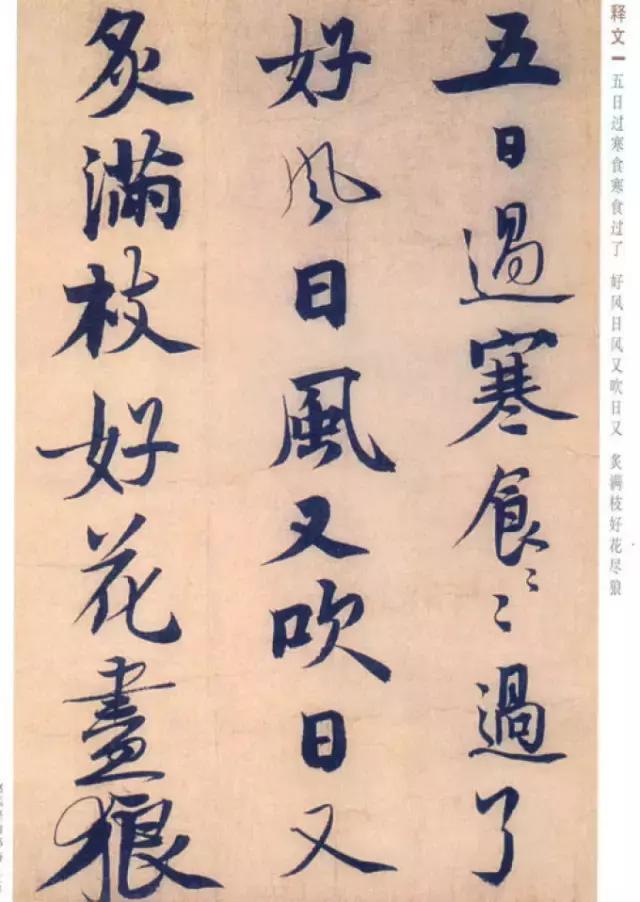 释文一 五日过寒食寒食过了 好风日风又吹日又 炙满枝好花尽狼
五日過寒食〻〻過了
好风日風又吹日又
炙滿枝好花盡狼